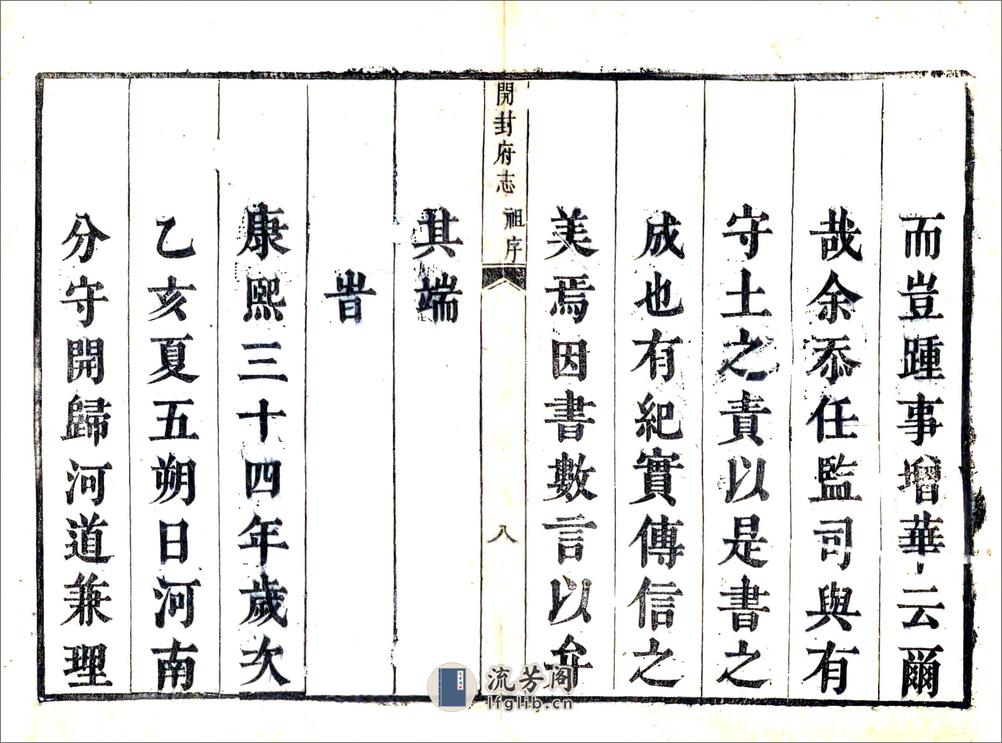 而豈踵事增華云爾
哉余忝任監司與有
守土之責以是書之
成也有紀實傳信之
美焉因書數言以弁
其端
開封府志 祖序
八
旹
康熙三十四年歲次
乙亥夏五朔日河南
分守開歸河道兼理
流芳阁
lfglib.cn